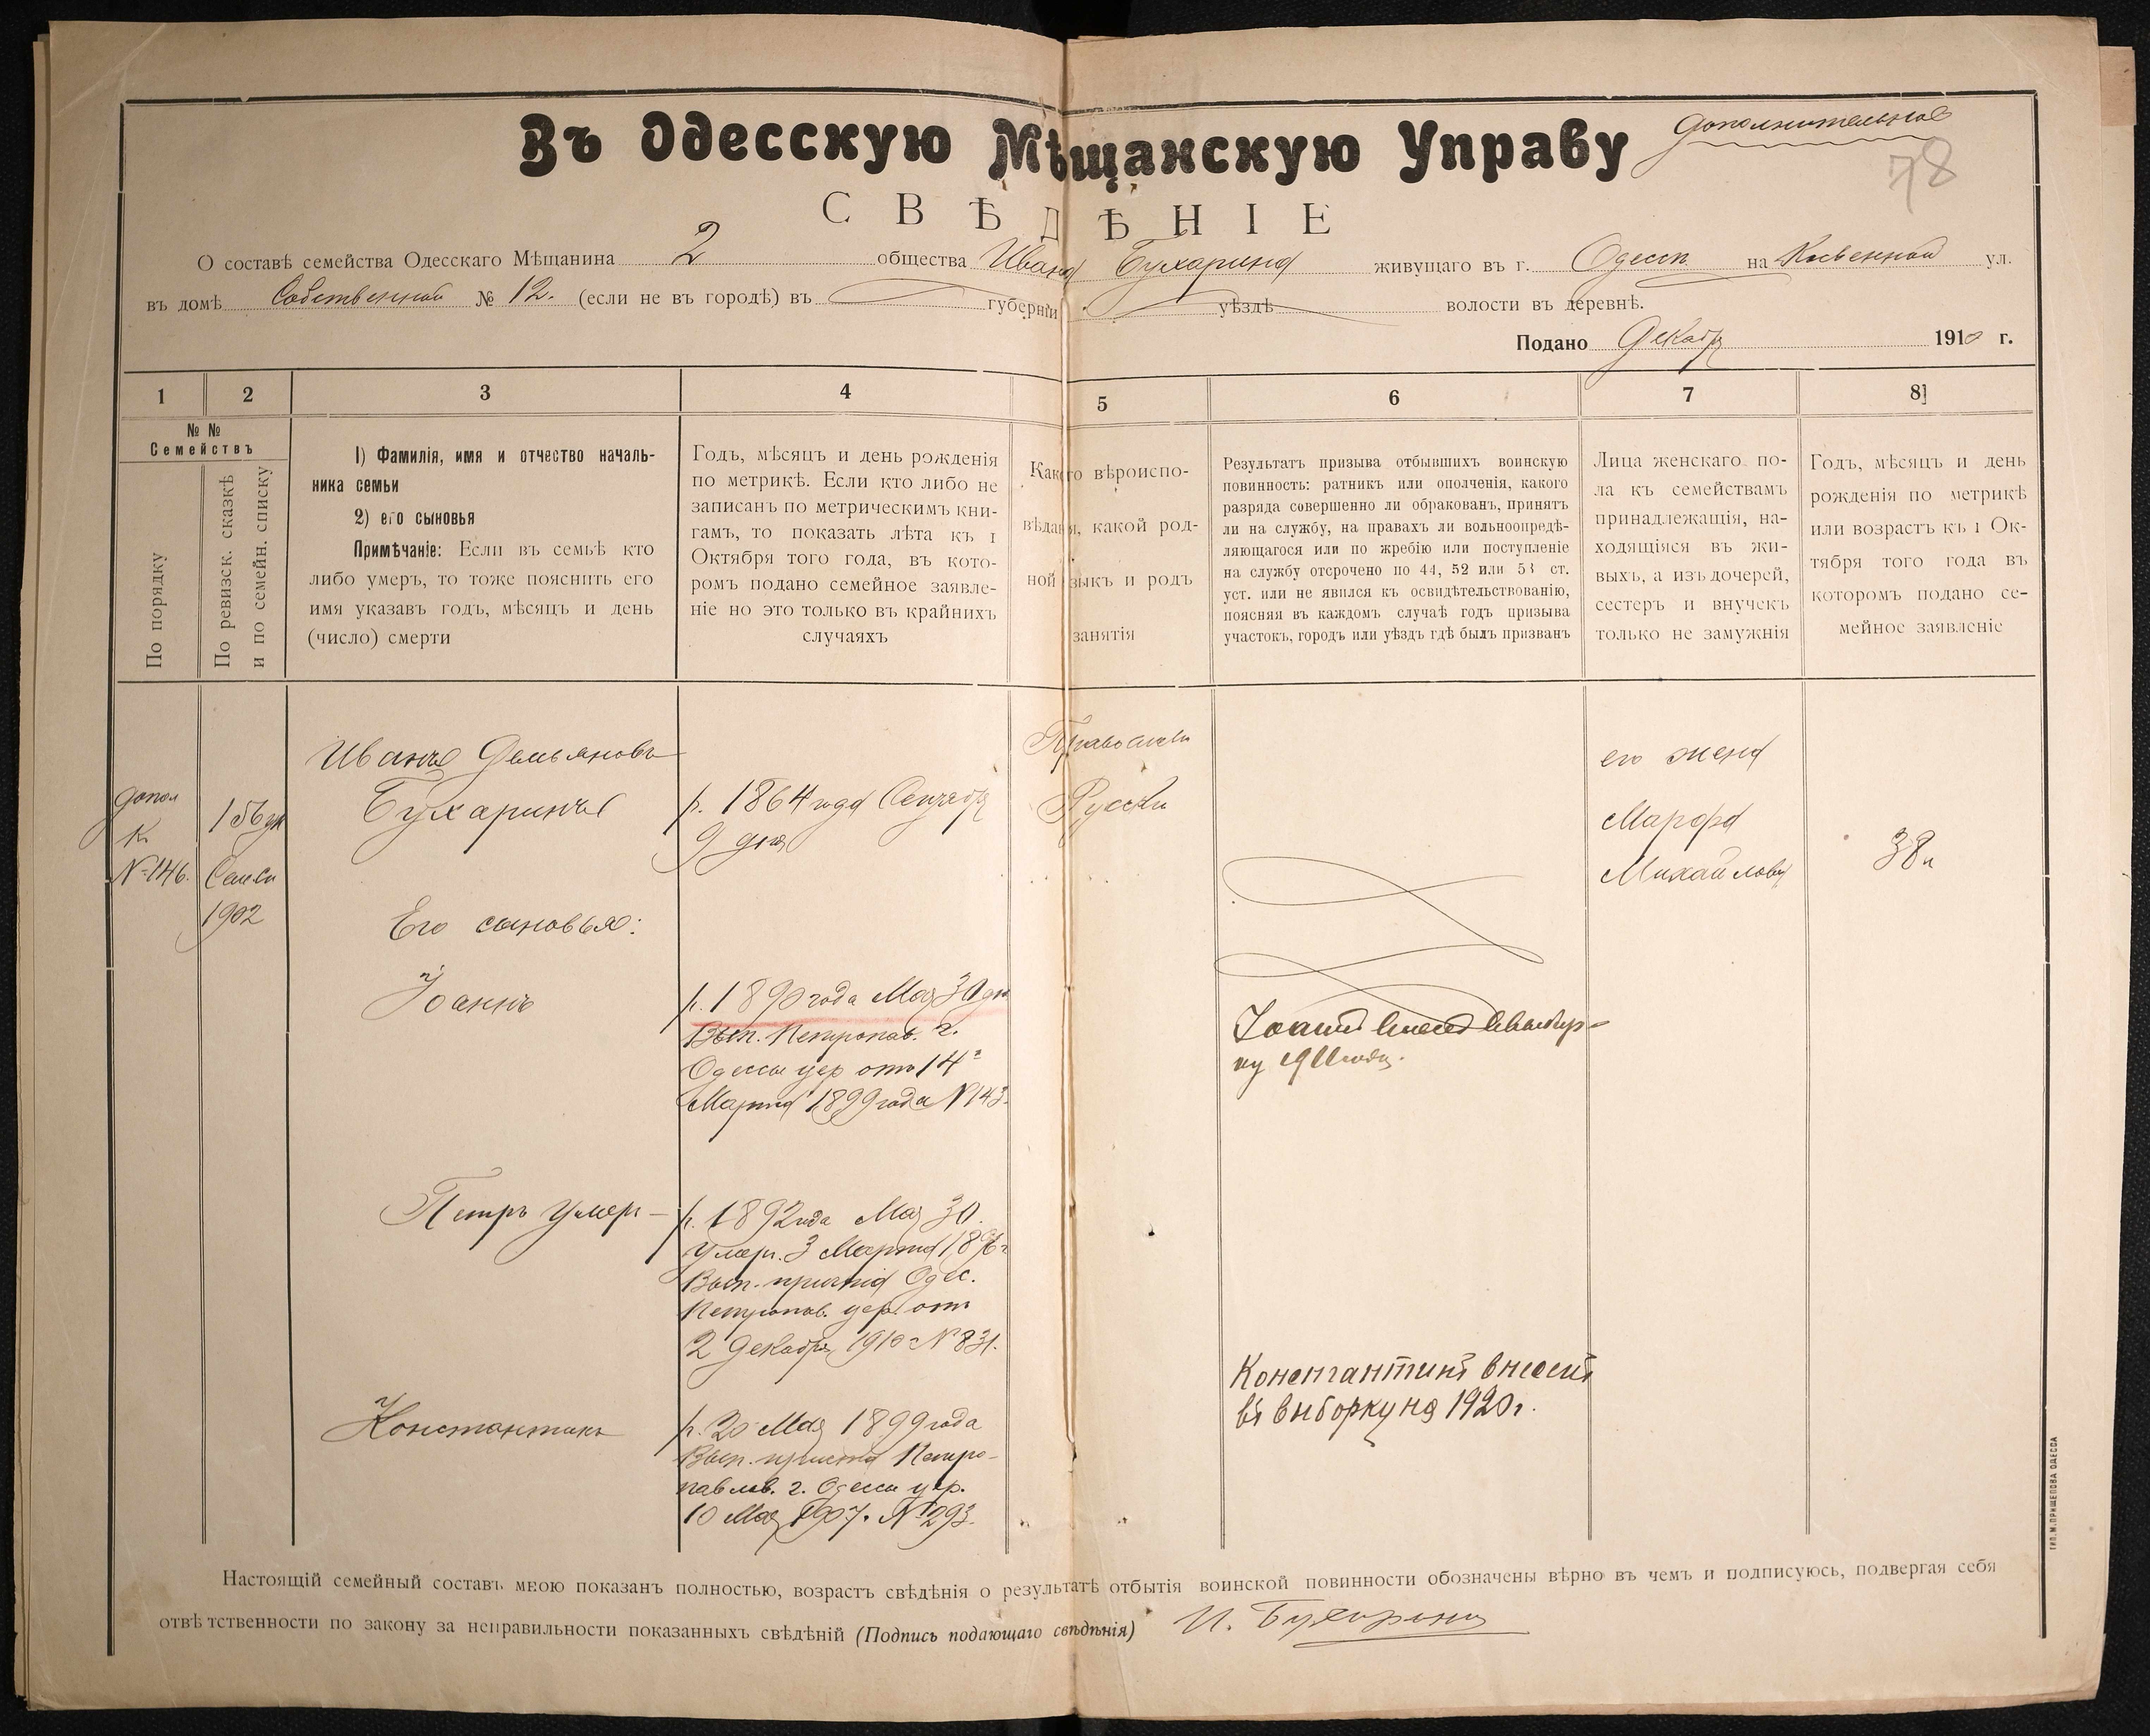 Въ Одесскую Мѣщанскую Управу
Дополнительное
78
СВѢДѢНІЕ
О составѣ семейства Одесскаго Мѣщанина 2 общества Ивана Бухарина живущаго въ г. Одессѣ на Косвенной ул.
въ домѣ Собственной № 12. (если не въ городѣ) въ губерніи уѣздѣ волости въ деревнѣ.
Подано Декабр 1910 г.
1 2 3 4 5 6 7 8]
№ №
Семействъ
По порядку
По ревизск. сказкѣ
и по семейн. списку
1) Фамилія, имя и отчество началь-
ника семьи
2) его сыновья
Примѣчаніе: Если въ семьѣ кто
либо умеръ, то тоже пояснить его
имя указавъ годъ, мѣсяцъ и день
(число) смерти
Годъ, мѣсяцъ и день рожденія
по метрикѣ. Если кто либо не
записанъ по метрическимъ кни-
гамъ, то показать лѣта къ 1
Октября того года, въ кото-
ромъ подано семейное заявле-
ніе но это только въ крайнихъ
случаяхъ
Какого вѣроиспо-
вѣданія, какой род-
ной языкъ и родъ
занятія
Результатъ призыва отбывшихъ воинскую
повинность: ратникъ или ополченія, какого
разряда совершенно ли обракованъ, принятъ
ли на службу, на правахъ ли вольноопредѣ-
ляющагося или по жребію или поступленіе
на службу отсрочено по 44, 52 или 53 ст.
уст. или не явился къ освидѣтельствованію,
поясняя въ каждомъ случаѣ годъ призыва
участокъ, городъ или уѣздъ гдѣ былъ призванъ
Лица женскаго по-
ла къ семействамъ
принадлежащія, на-
ходящіяся въ жи-
выхъ, а изъ дочерей,
сестеръ и внучекъ
только не замужнія
Годъ, мѣсяцъ и день
рожденія по метрикѣ
или возрастъ къ 1 Ок-
тября того года въ
которомъ подано се-
мейное заявленіе
допол
к
№ 146.
1902
Иванъ Демьяновъ
Бухаринъ
р. 1864 года Сентябр
9 дня
Православн
Русскй
его жена
Марфа
Михайлова
38 л
Его сыновья:
Іоаннъ
р. 1890 года Мая 30 дня
Вып. Петропав. г.
Одессы цер отъ 14 г
Марта 1899 года № 143.
Іоаннъ внесенъ въ выбор-
ку 1911 года.
Петръ умеръ —
р. 1892 года Мая 30.
Умеръ. 3 Марта 1896 г
Вып. причта Одес.
Петропав. цер. отъ
2 Декабря 1910 № 831.
Константинъ
р. 20 Мая 1899 года
Вып. причта Петро-
павлов. г. Одессы цер.
10 Мая 1907. № 293.
Константинъ внесенъ
въ выборку на 1920 г.
Настоящій семейный составъ мною показанъ полностью, возрастъ свѣдѣнія о результатѣ отбытія воинской повинности обозначены вѣрно въ чемъ и подписуюсь, подвергая себя
отвѣтственности по закону за неправильности показанныхъ свѣдѣній (Подпись подающаго свѣдѣнія) И. Бухаринъ
ТИП. М. ПРИЩЕПОВА ОДЕССА